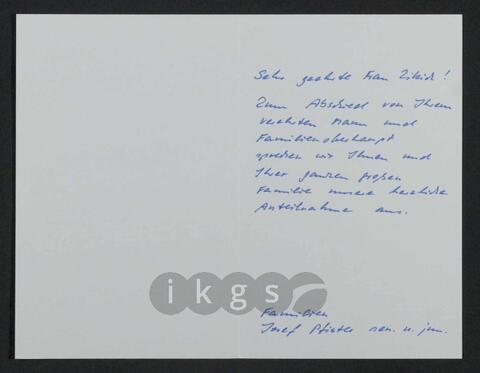 Sehr geehrte Frau Zikidi!
Zum Abschied von Ihrem
verehrten Mann und
Familienoberhaupt
sprechen wir Ihnen und
Ihrer ganzen großen
Familie unsere herzliche
Anteilnahme aus.
ikgs
Familien
Josef Pfister sen. u. jun.